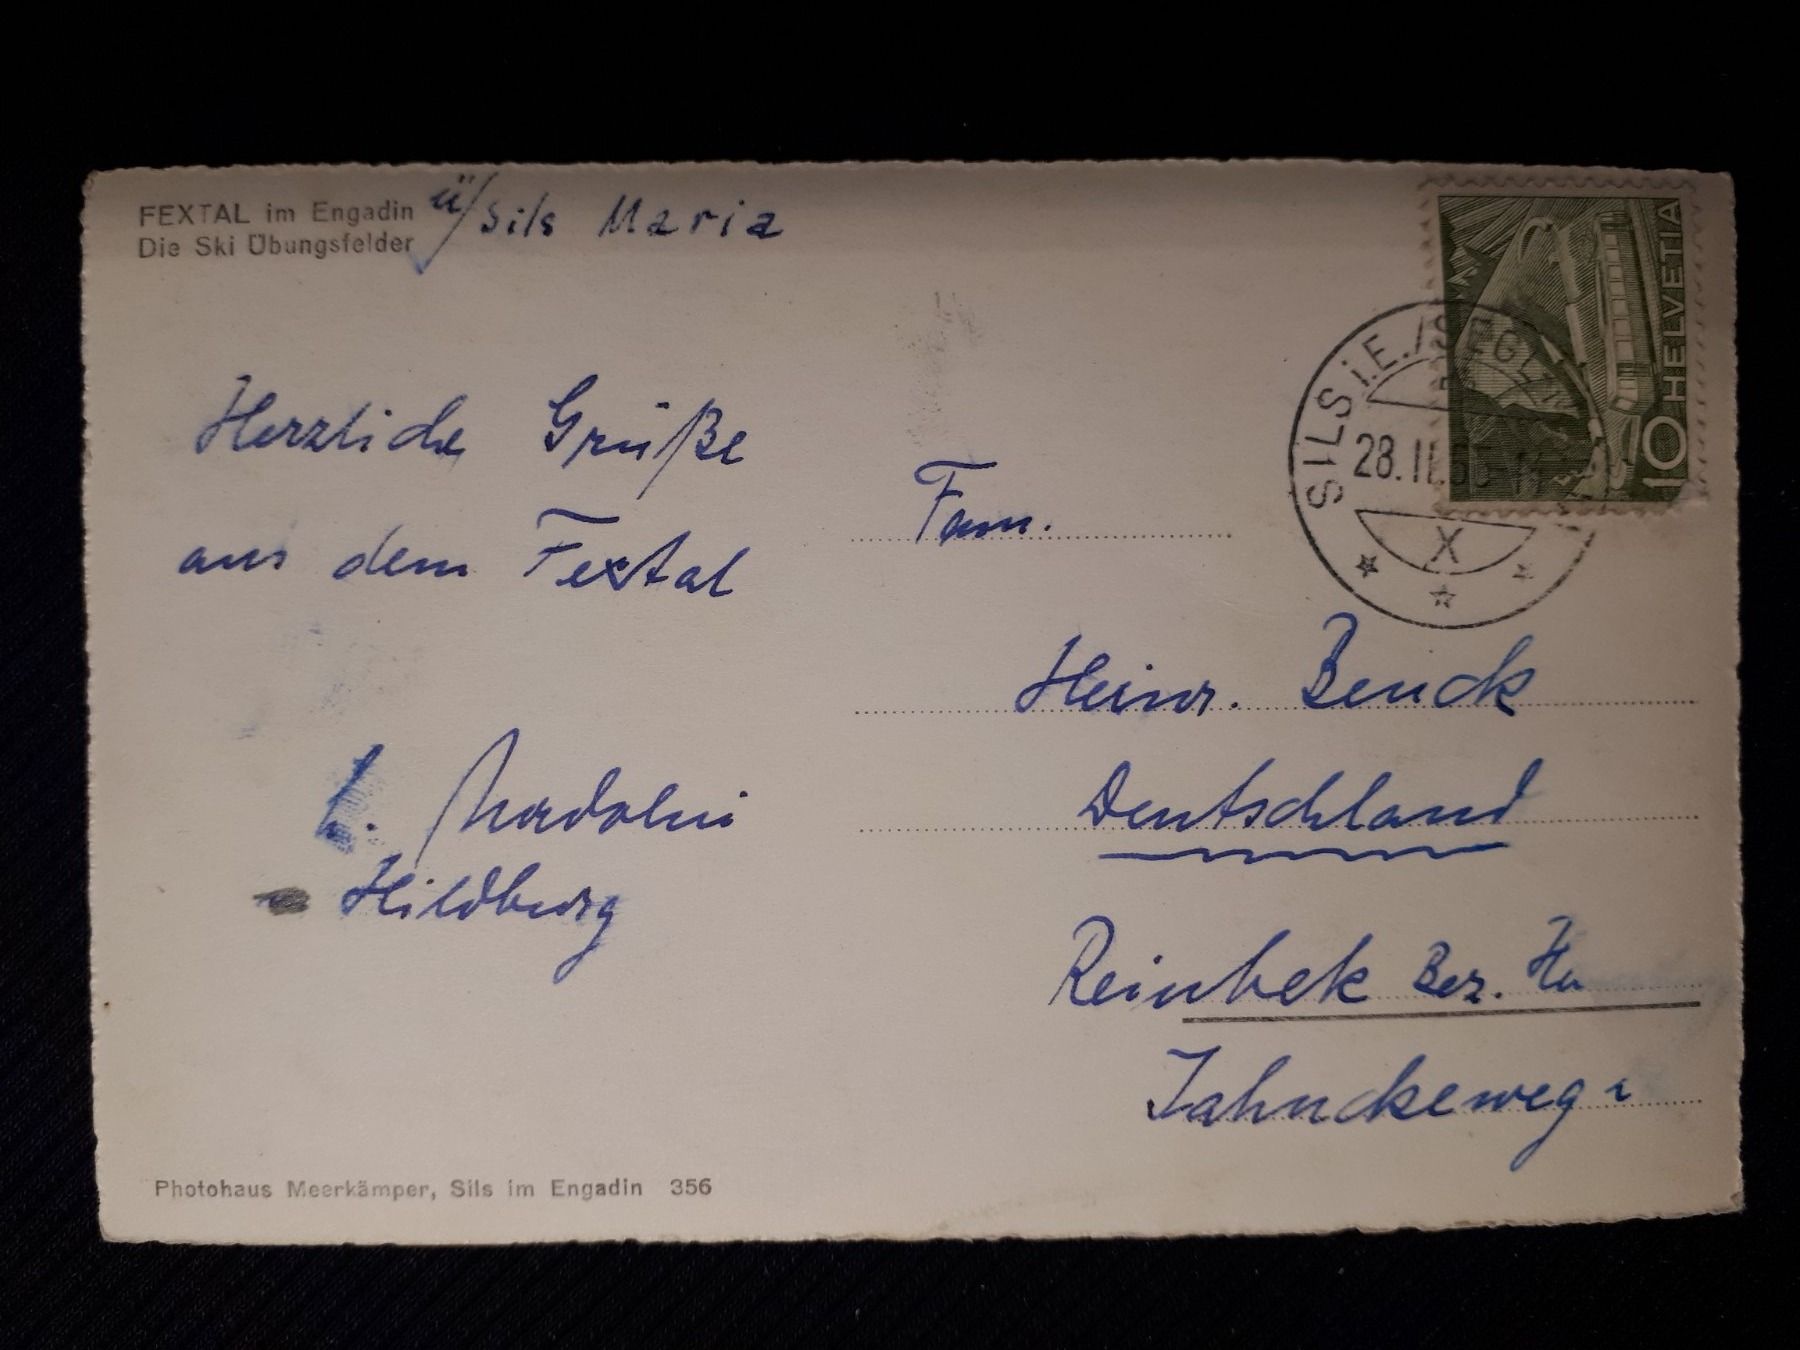 FEXTAL im Engadin
Die Ski Übungsfelder
ü/Sils Maria
HELVETIA
10
SILS i.E./SEGL
28.II.5
X
Herzliche Grüße
aus dem Fextal
Hildburg
Fam.
Heinr. Benck
Deutschland
Reinbek Bez. Ha
Jahnckeweg
Photohaus Meerkämper, Sils im Engadin 356